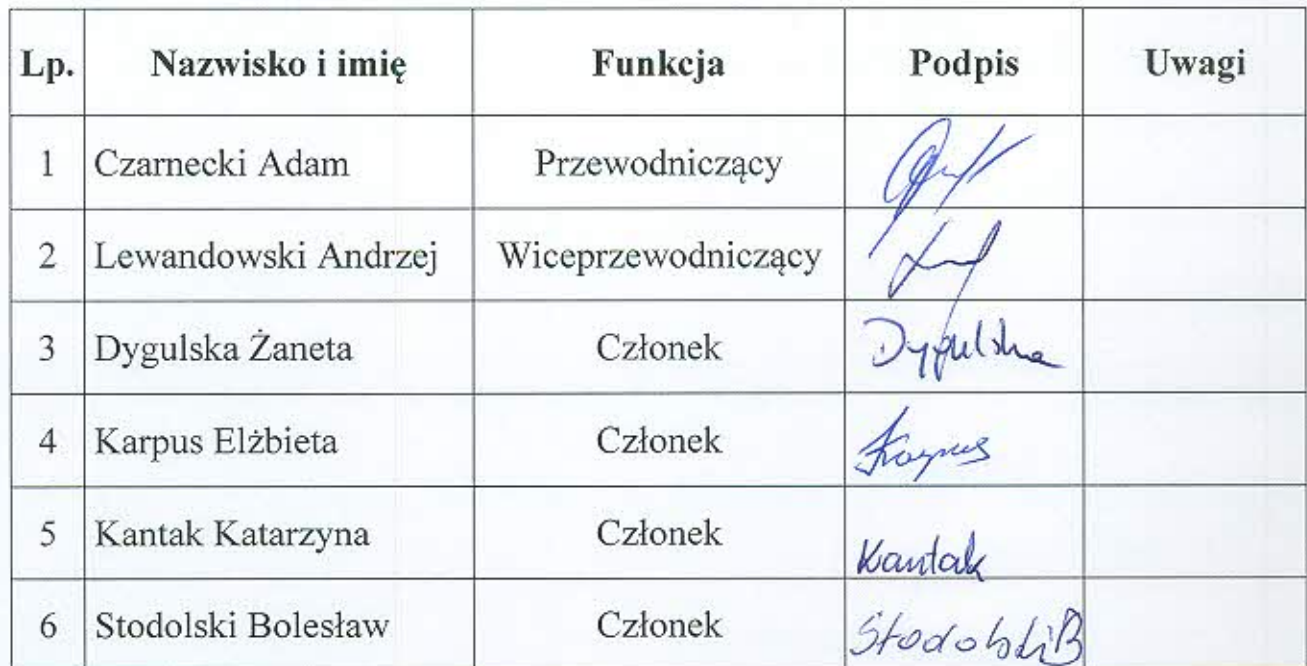 Lp. Nazwisko i imię Funkcja Podpis Uwagi
1 Czarnecki Adam Przewodniczący
2 Lewandowski Andrzej Wiceprzewodniczący
3 Dygulska Żaneta Członek Dygulska
4 Karpus Elżbieta Członek Karpus
5 Kantak Katarzyna Członek Kantak
6 Stodolski Bolesław Członek Stodolski B